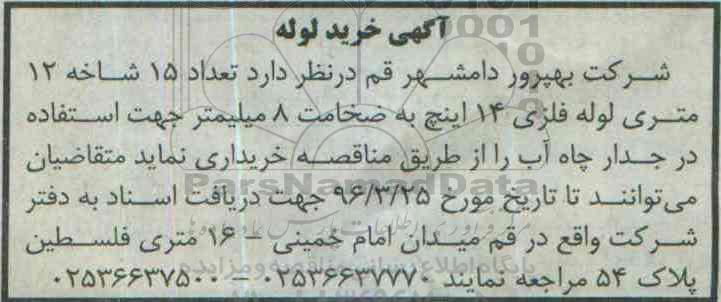 آگهی خرید لوله
شرکت بهپرور دامشهر قم درنظر دارد تعداد ۱۵ شاخه ۱۲
متری لوله فلزی ۱۴ اینچ به ضخامت ۸ میلیمتر جهت استفاده
در جدار چاه آب را از طریق مناقصه خریداری نماید متقاضیان
می‌توانند تا تاریخ مورخ ۹۶/۳/۲۵ جهت دریافت اسناد به دفتر
شرکت واقع در قم میدان امام خمینی – ۱۶ متری فلسطین
پلاک ۵۴ مراجعه نمایند ۰۲۵۳۶۶۳۷۷۷۰ – ۰۲۵۳۶۶۳۷۵۰۰
ParsNamadData